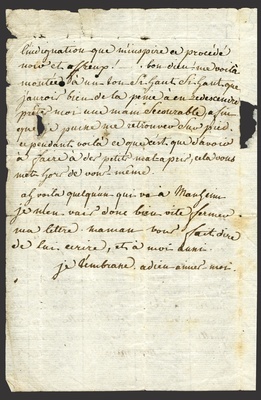 l'indignation que m'inspire ce procédé
noir et affreux! bon dieu me voila
montée à un ton si haut si haut que
j'aurois bien de la peine à en redescendre
moi une main secourable afin
que je puisse me retrouver sur pied.
cependant voila ce que c'est que d'avoir
à faire à des petits cela vous
met hors de vous même
ah voila quelqu'un qui va à Manheim
je m'en vais donc bien vite fermer
ma lettre. maman vous fait dire
de lui ecrire, et à moi aussi
je t'embrasse adieu aimes moi